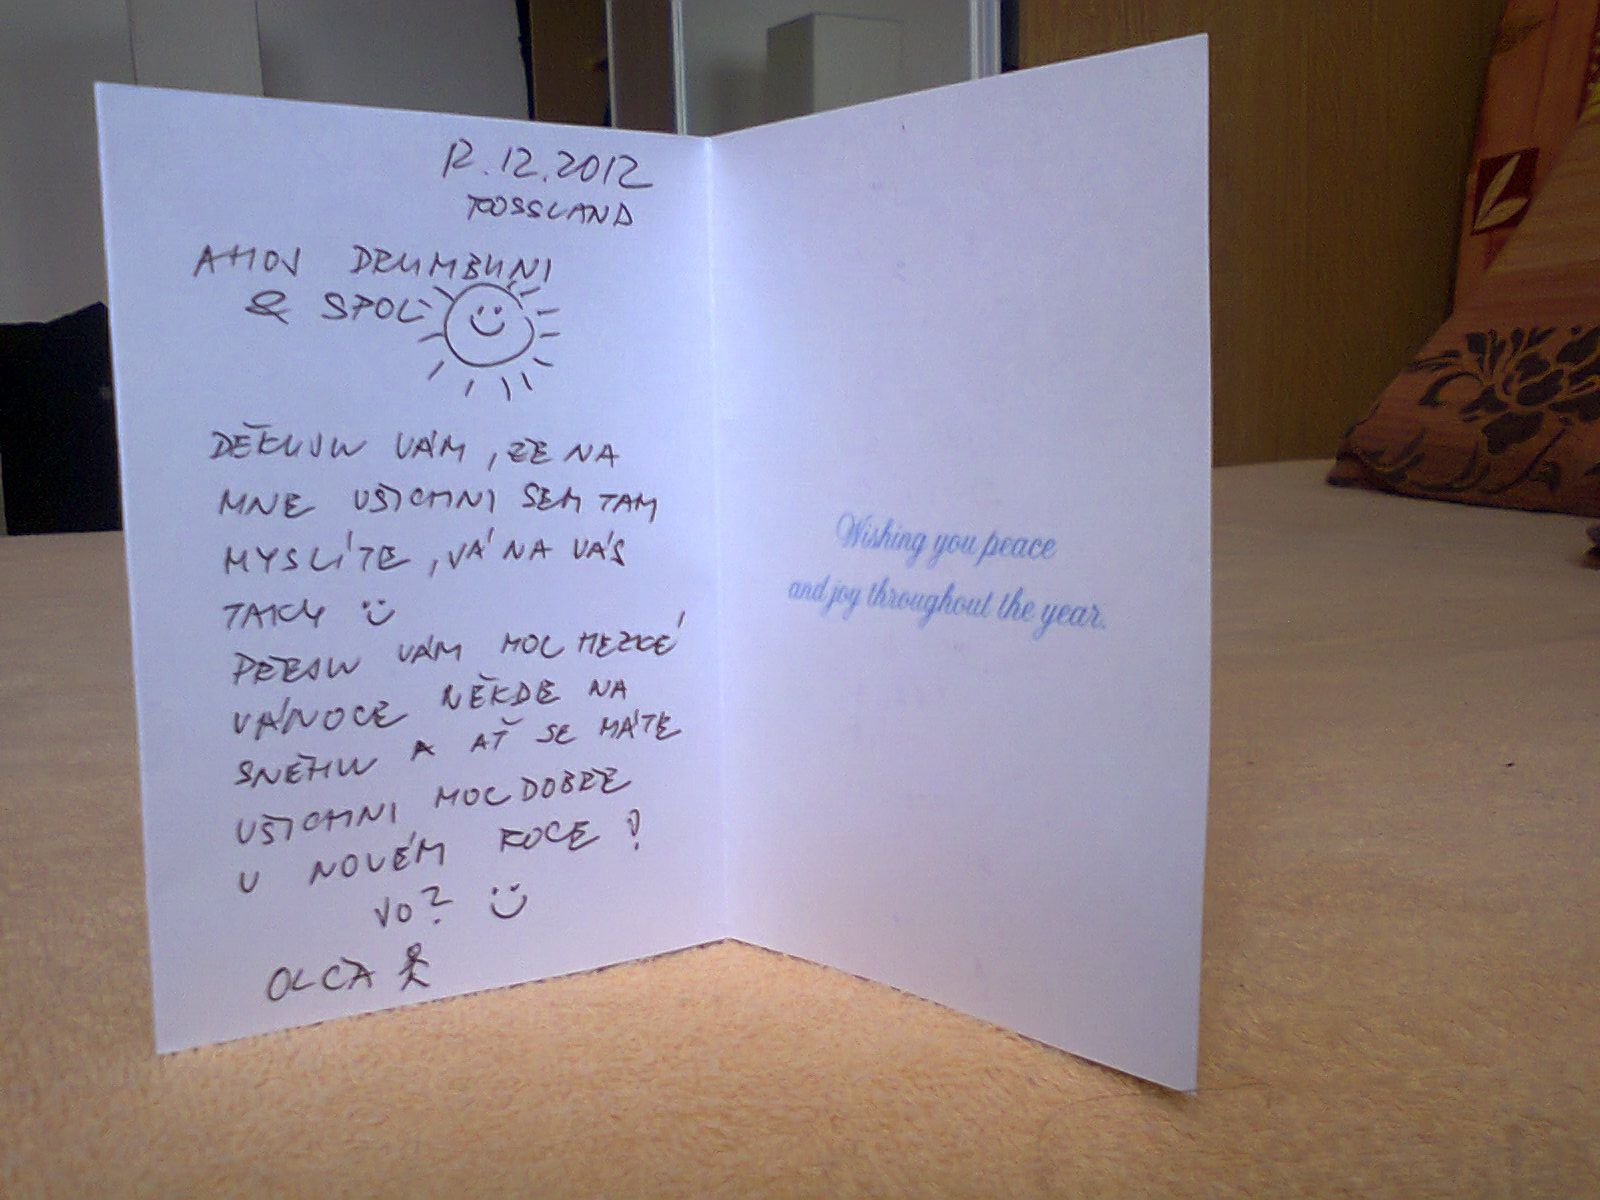 12.12.2012
ROSSLAND
AHOJ DRUMBUNI
& SPOL
DĚKUJU VÁM, ŽE NA
MNE VŠICHNI SEM TAM
MYSLÍTE, JÁ NA VÁS
TAKY
PŘEJU VÁM MOC HEZKÉ
VÁNOCE NĚKDE NA
SNĚHU A AŤ SE MÁTE
VŠICHNI MOC DOBŘE
V NOVÉM ROCE!
JO?
OLČA
Wishing you peace
and joy throughout the year.